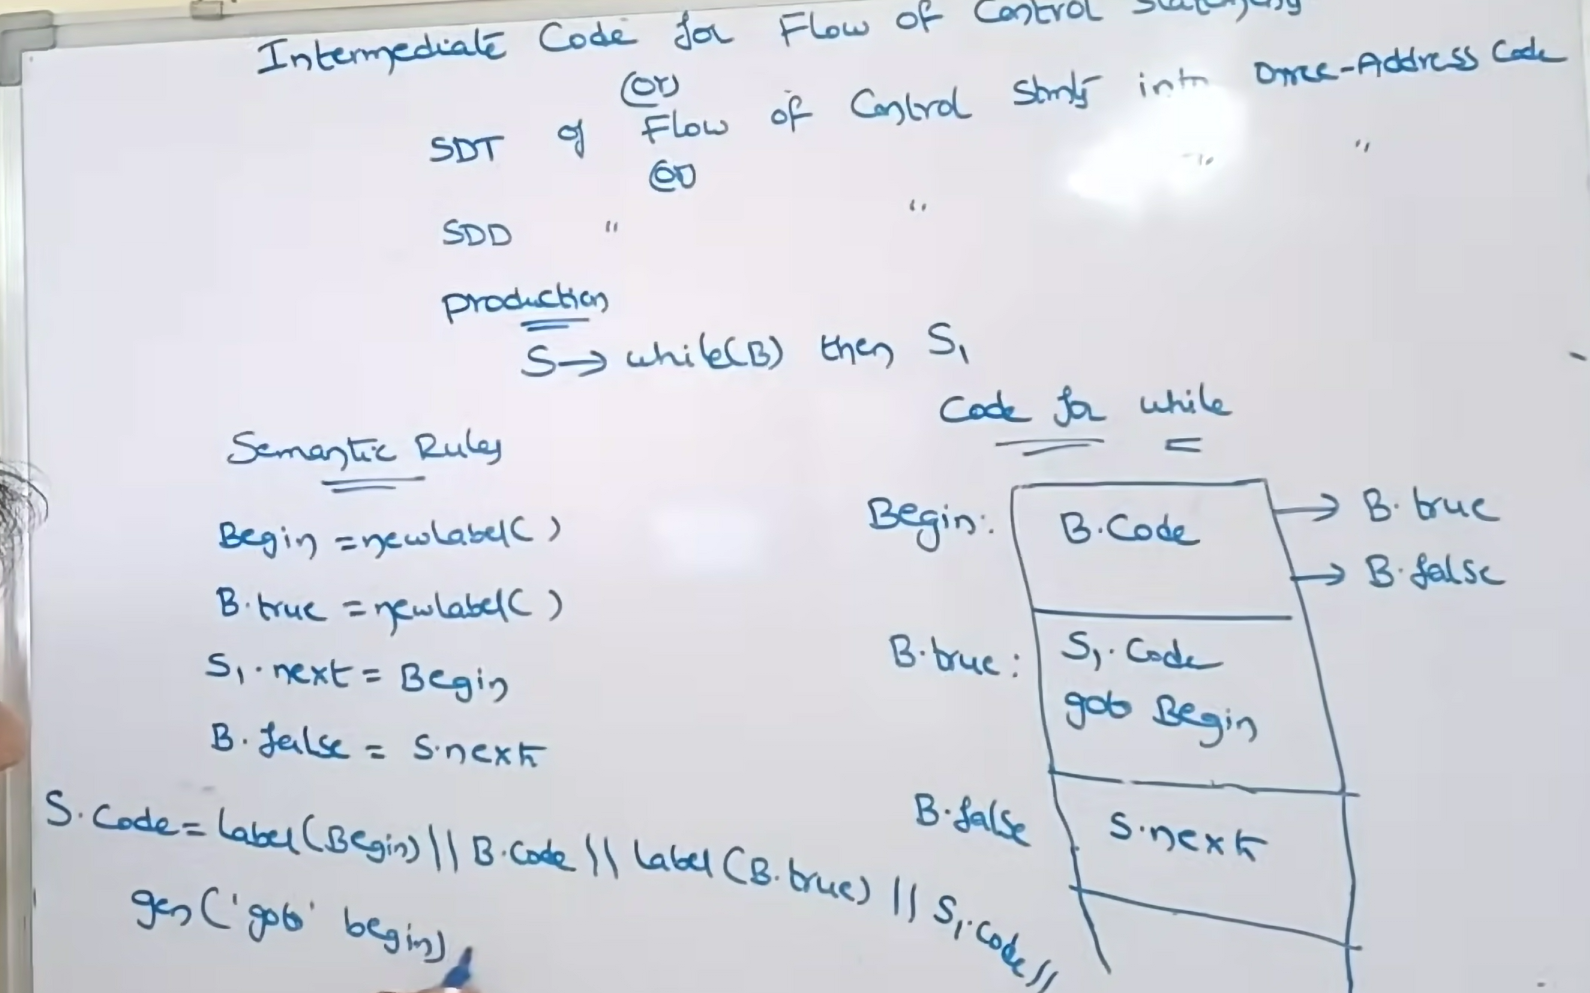 Intermediate Code for Flow of Control
(or)
SDT of Flow of Control Stmts into Three-Address Code
(or)
SDD " " " "
production
S → while(B) then S₁
Code for while
Semantic Rules
Begin = newlabel( )
B.true = newlabel( )
S₁.next = Begin
B.false = S.next
S.Code = label(Begin) || B.Code || label(B.true) || S₁.Code ||
gen('goto' begin)
Begin: B.Code → B.true
→ B.false
B.true: S₁.Code
goto Begin
B.false S.next